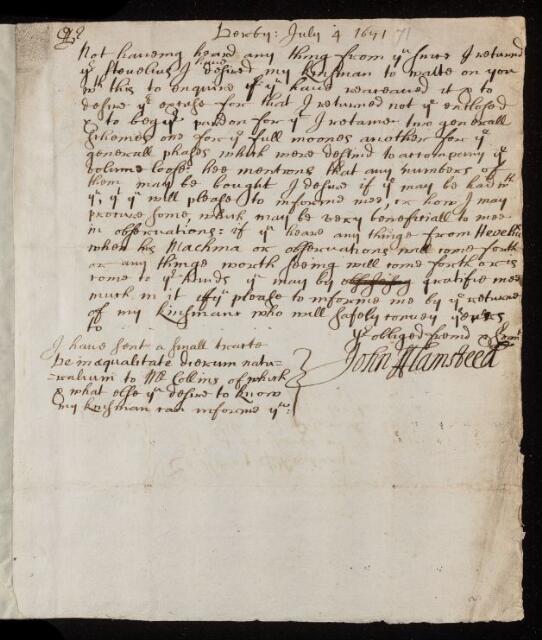 Derby: July 4 1671 71
Sr
Not haveing heard any thing from yu since I returned
yr Hevelius I have desired my kinsman to waite on you
wth this to enquire if yu have receaved it & to
desire yr excuse for that I returned not ye enclosed
& to beg yr pardon for yt I retaine two generall
schemes one for ye full moones another for ye
generall phases which were desind to accompany ye
volume loose: hee mentions that any numbers of
them may be bought I desire if yt may be had wth
yu, yt yu will please to informe mee, or how I may
procure some, which may be very beneficiall to mee
in observations: if yu heare any thinge from Hevelius
when his Machina or observations will come forth
or any thinge worth seeing will come forth or is
come to yr hands yu may by gratifie mee
much in it if yu please to informe mee by ye returne
of my kinsman who will safely convey
to
yr obliged freind & servnt
John Flamsteed
I have sent a small tracte
De inæqualitate dierum natu-
-ralium to Mr Collins of which
& what else yu desire to know
my kinsman can informe yu: